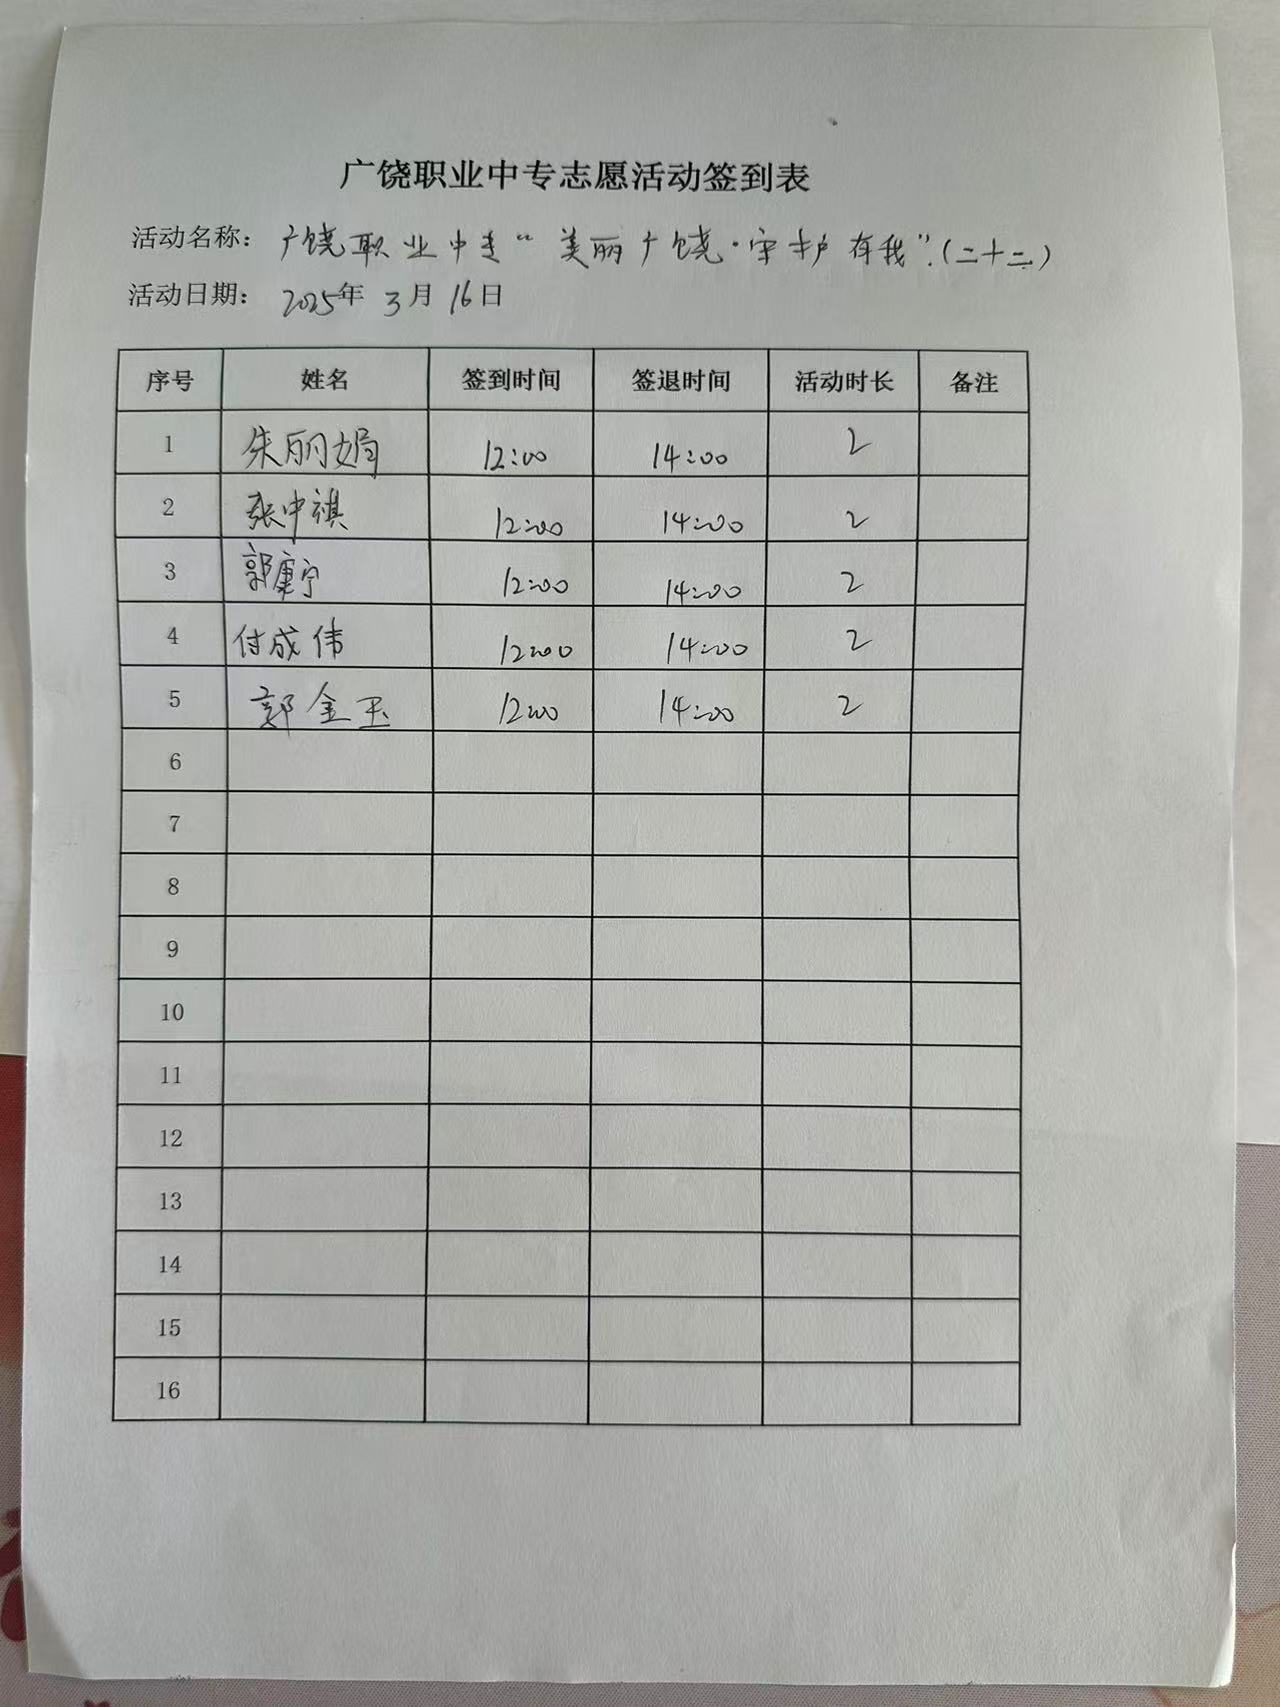 广饶职业中专志愿活动签到表
活动名称：广饶职业中专“美丽广饶·守护有我”.(二十二)
活动日期：2025年 3月 16日
序号 姓名 签到时间 签退时间 活动时长 备注
1 朱丽娟 12:00 14:00 2
2 张中祺 12:00 14:00 2
3 郭康宁 12:00 14:00 2
4 付成伟 12:00 14:00 2
5 郭金玉 12:00 14:00 2
6
7
8
9
10
11
12
13
14
15
16